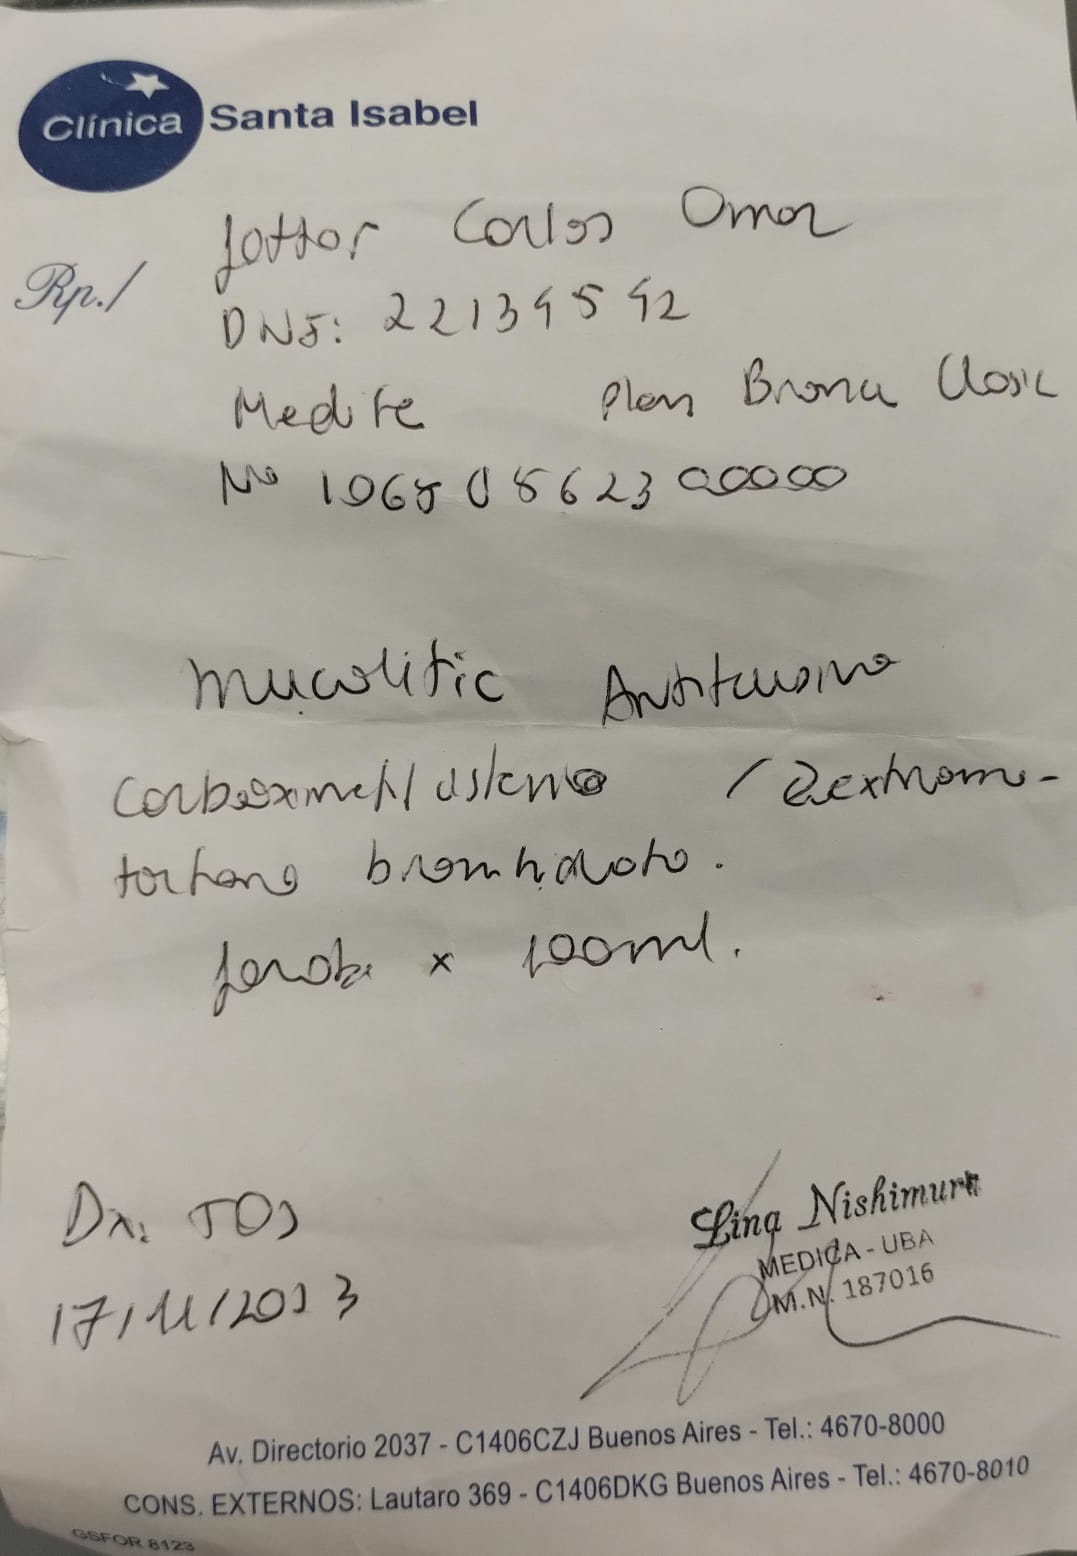 Clínica Santa Isabel
Rp./
Carlos Omar
DNI: 22139542
Medife Plan Bronce Classic
No
Mucolitic Antitusivo
Carboximetilcisteina / Dextrome-
torfano bromhidrato.
Jarabe x 100ml.
Dx: TOS
17/11/2023
Lina Nishimura
MEDICA - UBA
M.N. 187016
Av. Directorio 2037 - C1406CZJ Buenos Aires - Tel.: 4670-8000
CONS. EXTERNOS: Lautaro 369 - C1406DKG Buenos Aires - Tel.: 4670-8010
GSFOR 8123